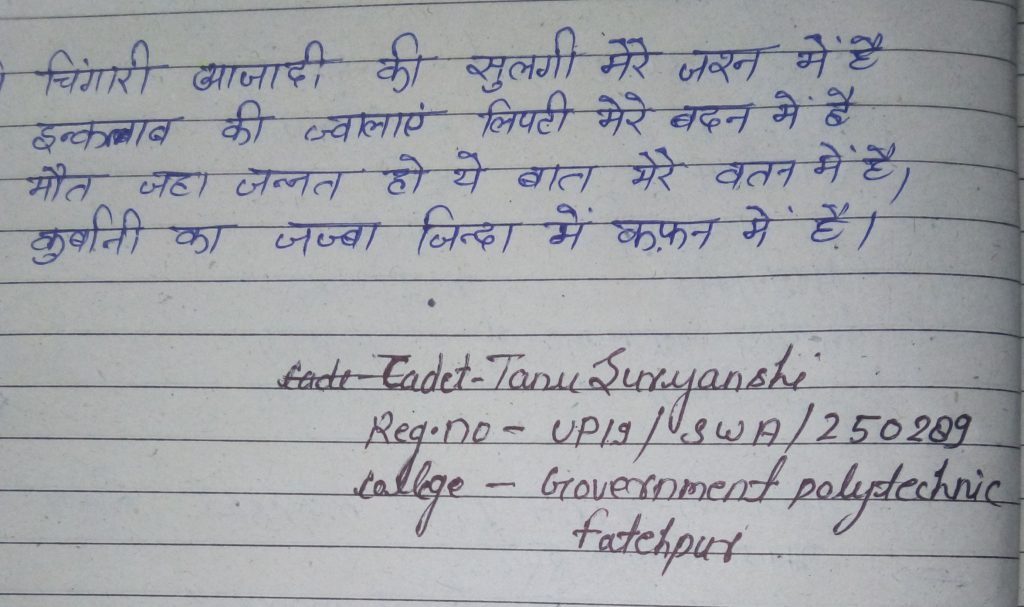 चिंगारी आजादी की सुलगी मेरे जश्न में है
इन्कलाब की ज्वालाएं लिपटी मेरे बदन में है
मौत जहा जन्नत हो ये बात मेरे वतन में है,
कुर्बानी का जज्बा जिन्दा में कफ़न में है।
Cadet-Tanu Suryanshi
Reg.no - UP19/SWA/250289
college - Government polytechnic
fatehpur